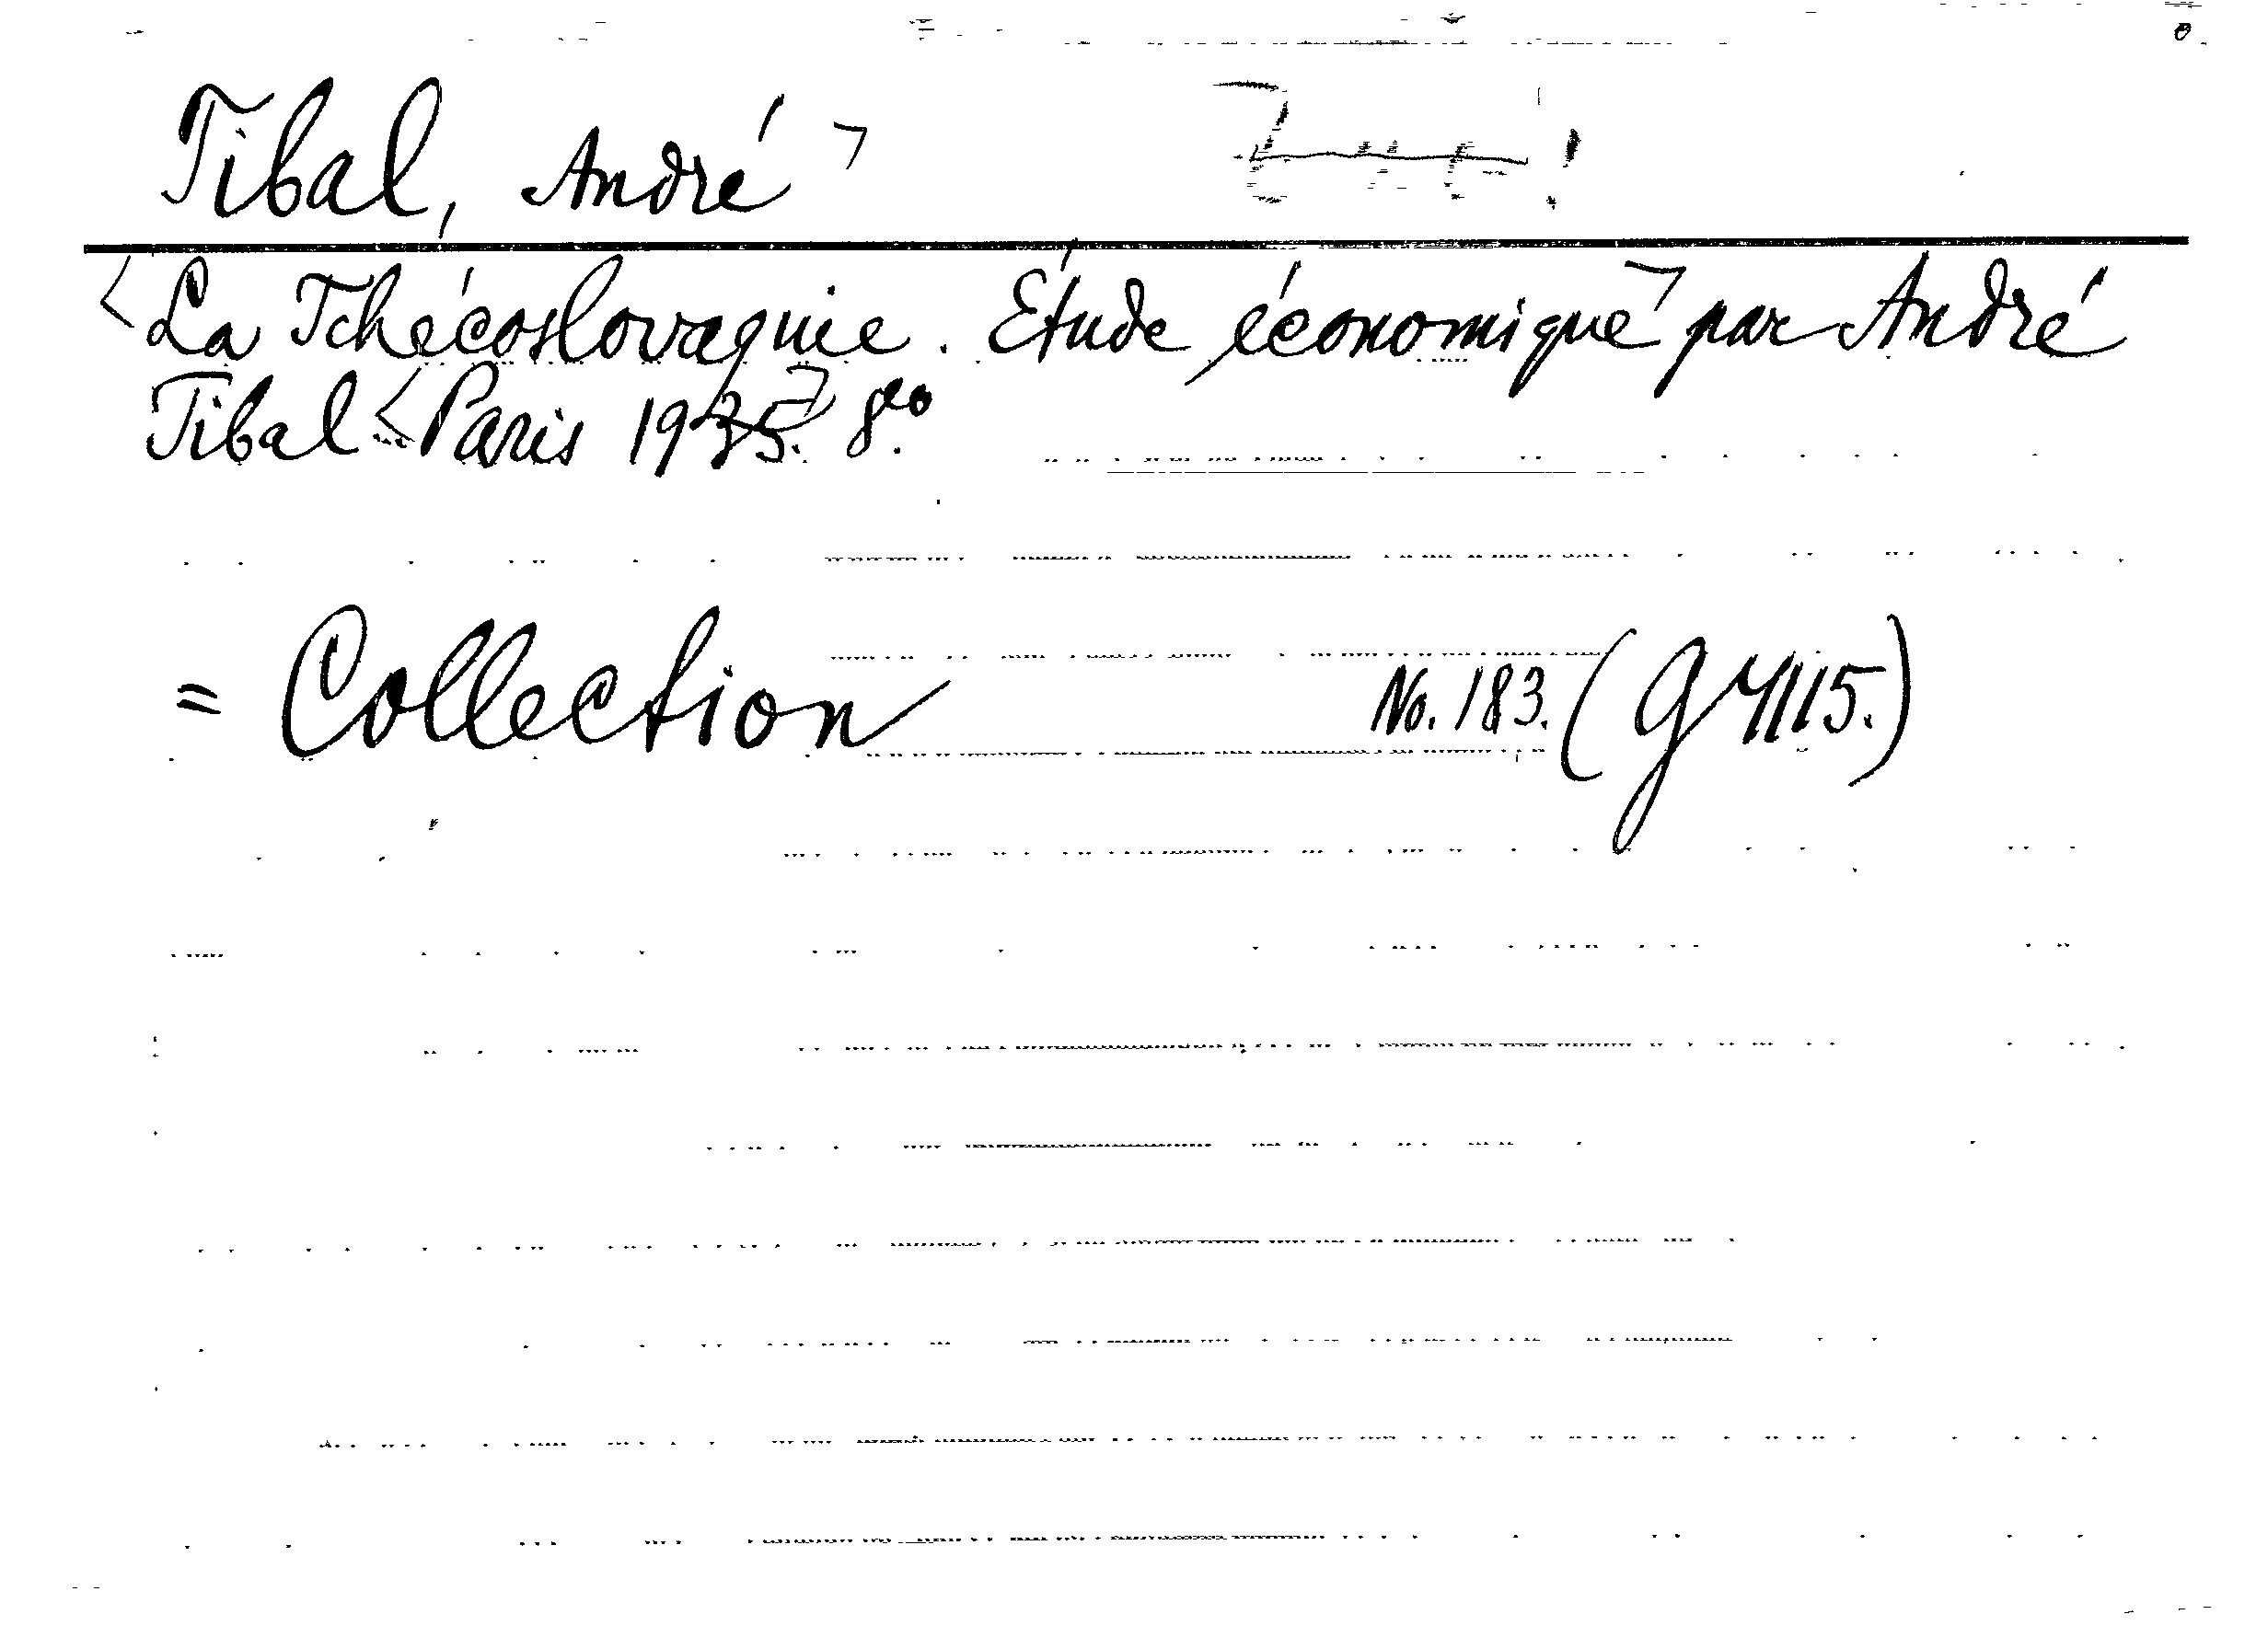 Tibal, André
La Tchécoslovaquie. Étude économique par André
Tibal Paris 1935. 8vo.
= Collection No. 183. (G 4115.)